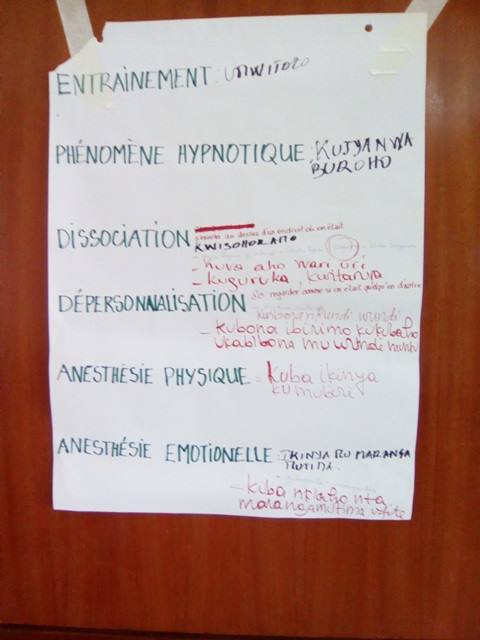 ENTRAINEMENT: UMWITOZO
PHÉNOMÈNE HYPNOTIQUE: KUJYANWA
BUROHO
s'envoler au dessus d'un endroit où on était
DISSOCIATION KWISOHORAMO
- kuva aho wari uri
- kuguruka, kwitarura
DÉPERSONNALISATION se regarder comme si on était quelqu'un d'autre
kwibonamo undi wundi
- kubona ibirimo kukubaho
ukabibona mu wundi muntu
ANESTHÉSIE PHYSIQUE = Kuba ikinya
ku mubiri
ANESTHÉSIE EMOTIONELLE: IKINYA RU MARANGA
MUTIMA.
- kuba nkaho nta
marangamutima ufite